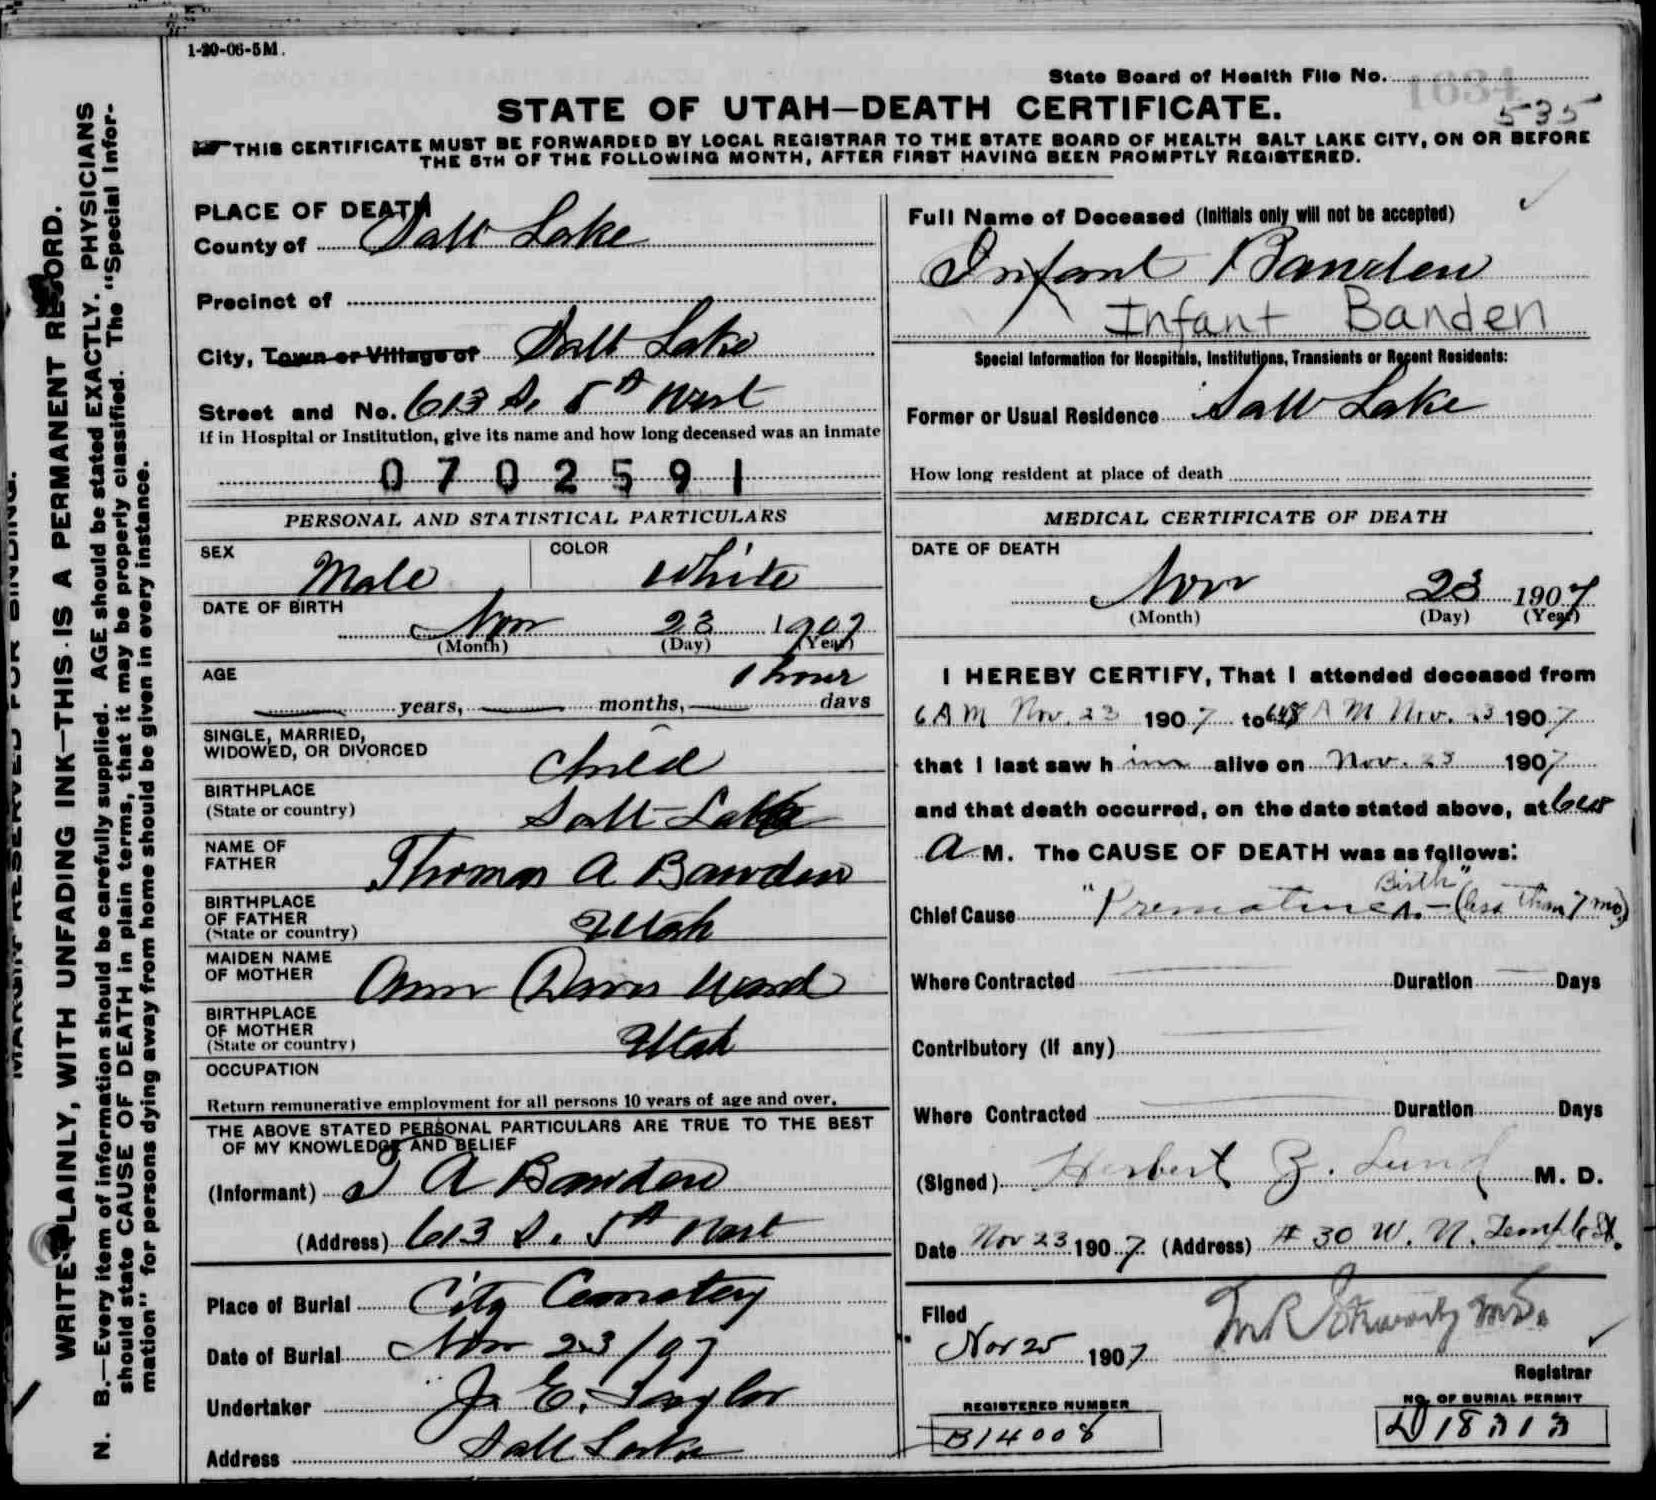 1-20-06-5M.
State Board of Health File No. 1634
535
STATE OF UTAH—DEATH CERTIFICATE.
THIS CERTIFICATE MUST BE FORWARDED BY LOCAL REGISTRAR TO THE STATE BOARD OF HEALTH SALT LAKE CITY, ON OR BEFORE
THE 5TH OF THE FOLLOWING MONTH, AFTER FIRST HAVING BEEN PROMPTLY REGISTERED.
MARGIN RESERVED FOR BINDING.
WRITE PLAINLY, WITH UNFADING INK—THIS IS A PERMANENT RECORD.
N. B.—Every item of information should be carefully supplied. AGE should be stated EXACTLY. PHYSICIANS
should state CAUSE OF DEATH in plain terms, that it may be properly classified. The "Special Infor-
mation" for persons dying away from home should be given in every instance.
PLACE OF DEATH
County of Salt Lake
Precinct of
City, Town or Village of Salt Lake
Street and No. 613 S. 5th West
If in Hospital or Institution, give its name and how long deceased was an inmate
0702591
PERSONAL AND STATISTICAL PARTICULARS
SEX Male COLOR White
DATE OF BIRTH Nov 23 1907
(Month) (Day) (Year)
AGE 1 hour
years, months, days
SINGLE, MARRIED,
WIDOWED, OR DIVORCED Child
BIRTHPLACE
(State or country) Salt Lake
NAME OF
FATHER Thomas A Bawden
BIRTHPLACE
OF FATHER
(State or country) Utah
MAIDEN NAME
OF MOTHER Ann Davis Ward
BIRTHPLACE
OF MOTHER
(State or country) Utah
OCCUPATION
Return remunerative employment for all persons 10 years of age and over.
THE ABOVE STATED PERSONAL PARTICULARS ARE TRUE TO THE BEST
OF MY KNOWLEDGE AND BELIEF
(Informant) T A Bawden
(Address) 613 S. 5th West
Place of Burial City Cemetery
Date of Burial Nov 23/07
Undertaker J. E. Taylor
Address Salt Lake
Full Name of Deceased (Initials only will not be accepted)
Infant Bawden
Infant Banden
Special Information for Hospitals, Institutions, Transients or Recent Residents:
Former or Usual Residence Salt Lake
How long resident at place of death
MEDICAL CERTIFICATE OF DEATH
DATE OF DEATH
Nov 23 1907
(Month) (Day) (Year)
I HEREBY CERTIFY, That I attended deceased from
6 A M Nov. 23 1907 to A M Nov. 23 1907
that I last saw him alive on Nov. 23 1907
and that death occurred, on the date stated above, at
A M. The CAUSE OF DEATH was as follows:
Birth"
Chief Cause "Premature — (less than 7 mo.)
Where Contracted Duration Days
Contributory (If any)
Where Contracted Duration Days
(Signed) Herbert Z. Lund M. D.
Date Nov 23 1907 (Address) # 30 W. N. Temple St.
Filed
Nov 25 1907
Registrar
REGISTERED NUMBER
B14008
NO. OF BURIAL PERMIT
D18313